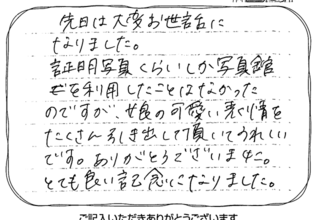 先日は大変お世話に
なりました。
証明写真くらいしか写真館
を利用したことはなかった
のですが、娘の可愛い表情を
たくさん引き出して頂いてうれしい
です。ありがとうございます。
とても良い記念になりました。
ご記入いただきありがとうございます